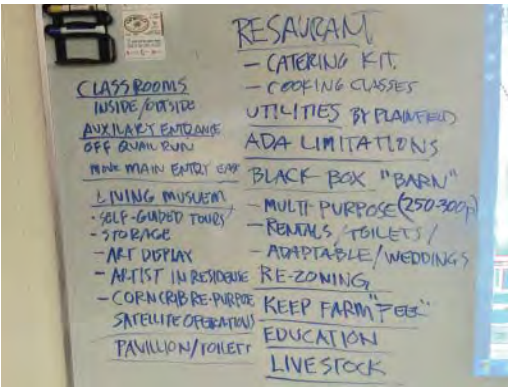 CLASSROOMS
INSIDE/OUTSIDE
AUXILARY ENTRANCE
OFF QUAIL RUN
MOVE MAIN ENTRY EAST
LIVING MUSUEM
· SELF-GUIDED TOURS
- STORAGE
- ART DISPLAY
- ARTIST IN RESIDENSE
- CORN CRIB RE-PURPOSE
SATELLITE OPERATIONS
PAVILLION/TOILETT
RESAURANT
- CATERING KIT.
- COOKING CLASSES
UTILITIES BY PLAINFIELD
ADA LIMITATIONS
BLACK BOX "BARN"
- MULTI-PURPOSE (250-300p)
- RENTALS/TOILETS/
- ADAPTABLE/WEDDINGS
RE-ZONING
KEEP FARM "FEEL"
EDUCATION
LIVESTOCK